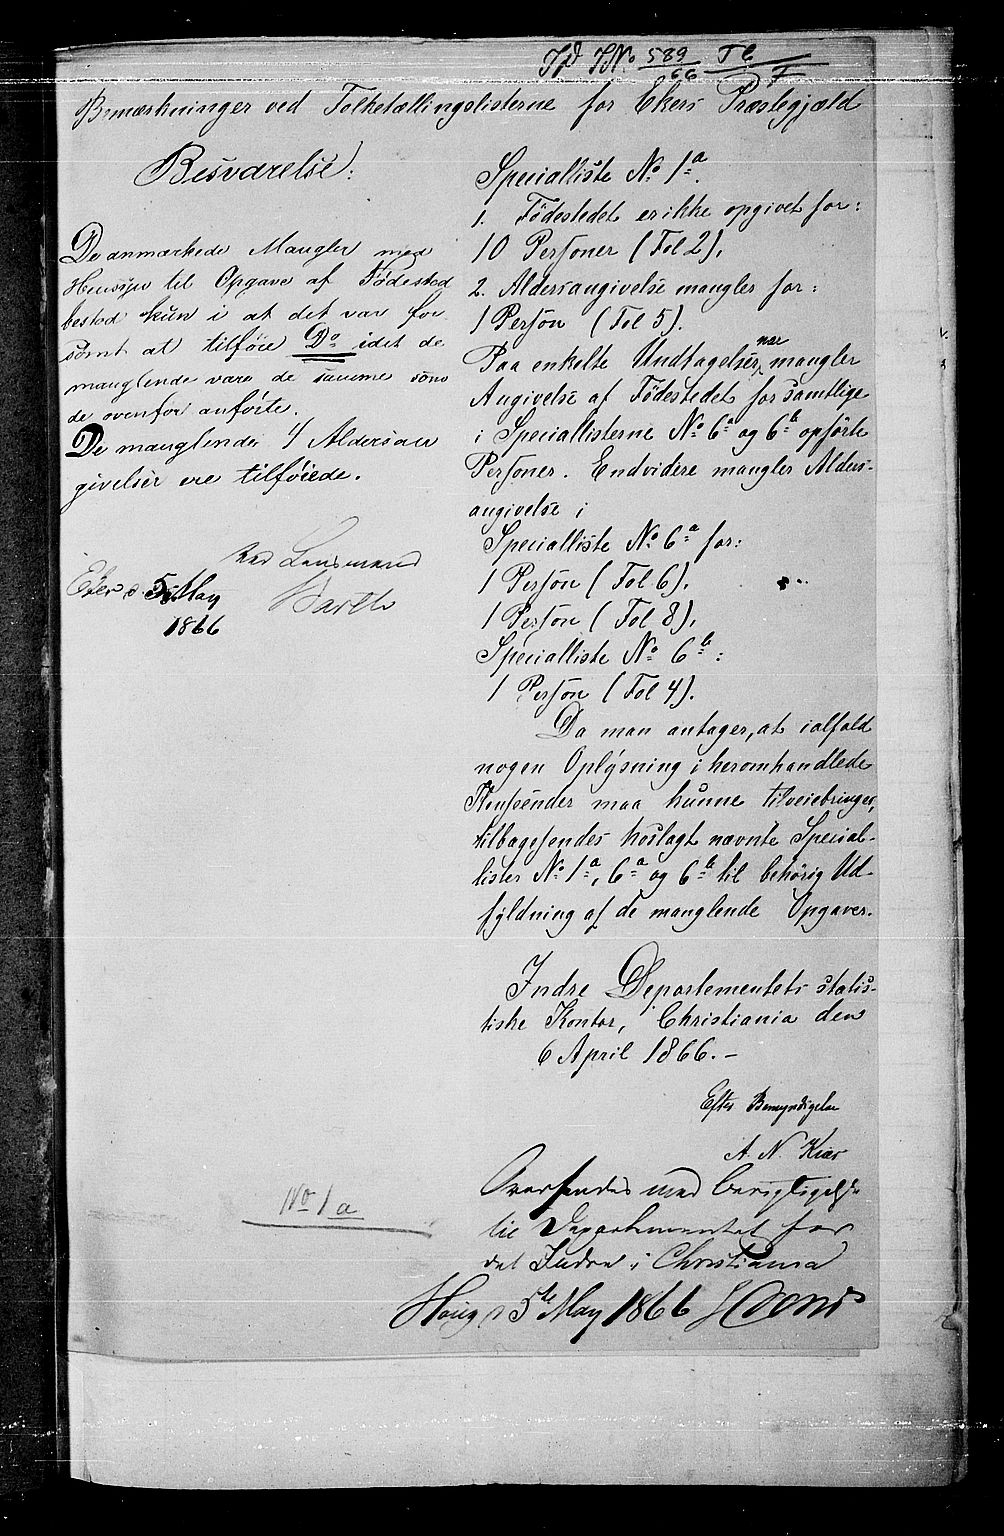 Id JNo 589/66 Fl/7
Bemærkninger ved Folketællingslisterne for Ekers Præstegjæld
Besvarelse:
De anmærkede Mangler med
Hensyn til Opgave af Fødested
bestod kun i at det var for
sømt at tilføie Do idet de
manglende vare de samme som
de ovenfor anførte.
De manglende 4 Aldersan
givelser ere tilføiede.
Eker d. 5 May
1866
Lensmand
Barth
Specialliste No 1a.
1. Fødestedet er ikke opgivet for:
10 Personer (Fol 2),
2. Aldersangivelse mangler for:
1 Person (Fol 5).
Paa enkelte Undtagelser nær mangler
Angivelse af Fødestedet for samtlige
i Speciallisterne No 6a og 6b opførte
Personer. Endvidere mangler Alders-
angivelse i
Specialliste No 6a for:
1 Person (Fol 6),
1 Person (Fol 8),
Specialliste No 6b:
1 Person (Fol 4).
Da man antager, at ialfald
nogen Oplysning i heromhandlede
Henseender maa kunne tilveiebringes,
tilbagesendes hoslagt nævnte Special-
lister No 1a, 6a og 6b til behørig Ud-
fyldning af de manglende Opgaver.
Indre Departementets statis-
tiske Kontor, Christiania den
6 April 1866. –
Efter Bemyndigelse
A. N. Kiær
Oversendes med Berigtigelse
til Departementet for
det Indre i Christiania
Houg d 5te May 1866
No 1a